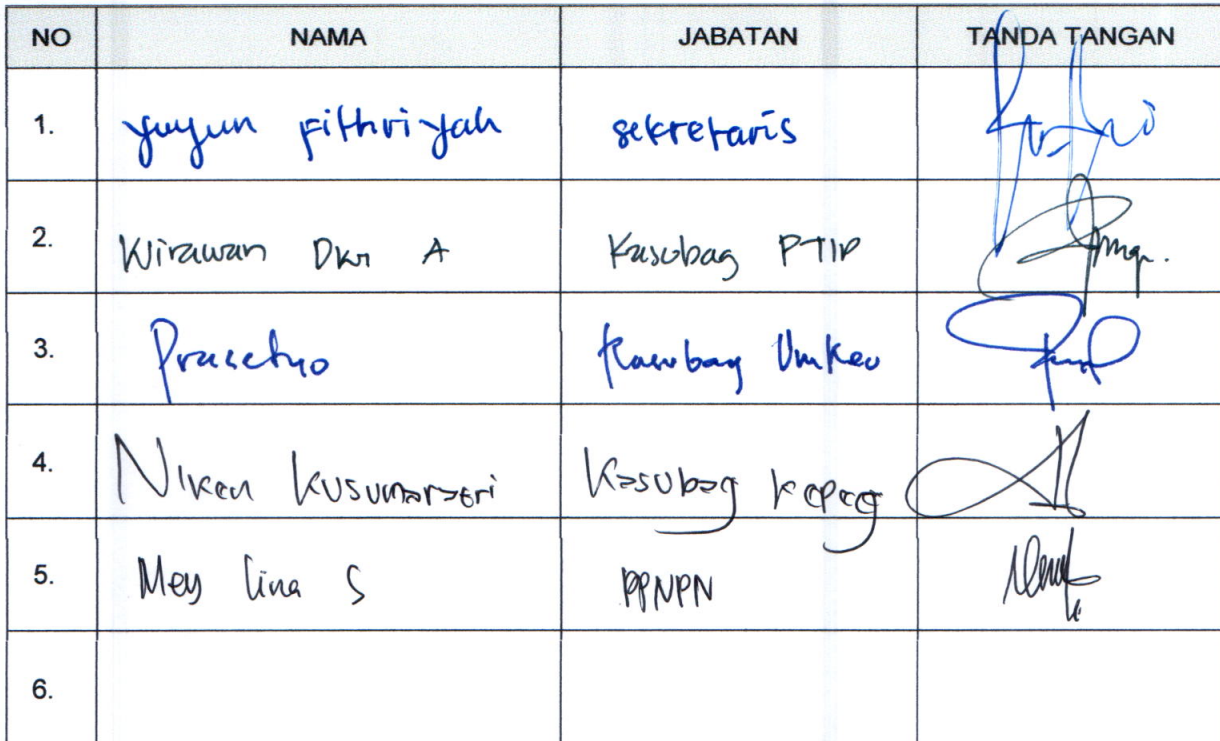 NO NAMA JABATAN TANDA TANGAN
1. Yuyun Fithriyah sekretaris
2. Wirawan A Kasubag PTIP
3. Prasetyo Kasubag Umkeu
4. Niken Kusumarasri Kasubag Kepeg
5. Mey Lina S PPNPN
6.